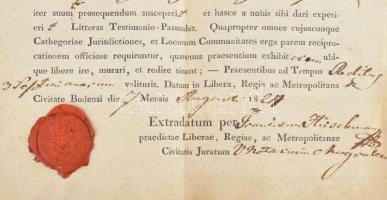 iter suum prosequendum susceperit et hasce a nobis sibi dari experi-
erit Litteras Testimonio-Passuales. Quapropter omnes cujuscunque
Cathegoriae Jurisdictiones, et Locorum Communitates erga parem recipro-
cationem officiose requiruntur, quatenus praesentium exhibi ubi-
que libere ire, morari, et redire sinant; — Praesentibus ad Tempus Reditus
3 Septimanarum valituris. Datum in Libera, Regia ac Metropolitana
Civitate Budensi die Mensis Augusti 18
Extradatum per Franciscum
praedictae Liberae, Regiae, ac Metropolitanae
Civitatis Juratum V Notarium